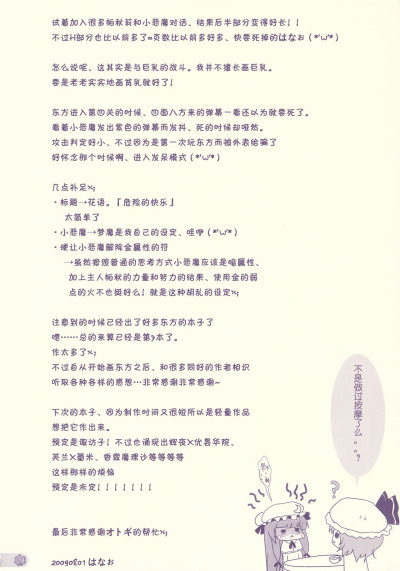 试着加入很多帕秋前和小恶魔对话、结果后半部分变得好长！！
不过H部分也比以前多了=页数比以前多好多、快要死掉的はなお（*'ω'*）
怎么说呢、这其实是与巨乳的战斗。我并不擅长画巨乳。
要是老老实实地画贫乳就好了！
东方进入第四关的时候、四面八方来的弹幕一看还以为就要死了。
看着小恶魔发出紫色的弹幕而发抖、死的时候却哑然。
攻击判定好小、不过因为是第一次玩东方而被外表给骗了
好怀念那个时候啊、进入发呆模式（*'ω'*）
几点补足x;
・标题→花语。『危险的快乐』
太简单了
・小恶魔→梦魔是我自己的设定、哇咿（*'ω'*）
・硬让小恶魔解除金属性的符
→虽然按照普通的思考方式小恶魔应该是暗属性、
加上主人帕秋的力量和努力的结果、使用金的弱
点的火不也挺好么！就是这种胡乱的设定x;
注意到的时候已经出了好多东方的本子了
嗯……总的来算已经是第9本了。
作太多了x;
不过自从开始画东方之后、和很多同好的作者相识
听取各种各样的感想…非常感谢非常感谢~
下次的本子、因为制作时间又很短所以是轻量作品
想把它作出来。
预定是诹访子！不过也涌现出辉夜X优昙华院、
芙兰X蕾米、香霖魔理沙等等等等
这样那样的烦恼
预定是未定！！！！！！！
最后非常感谢オトギ的帮忙x;
20090801 はなお
不是做过按摩了么。。。？